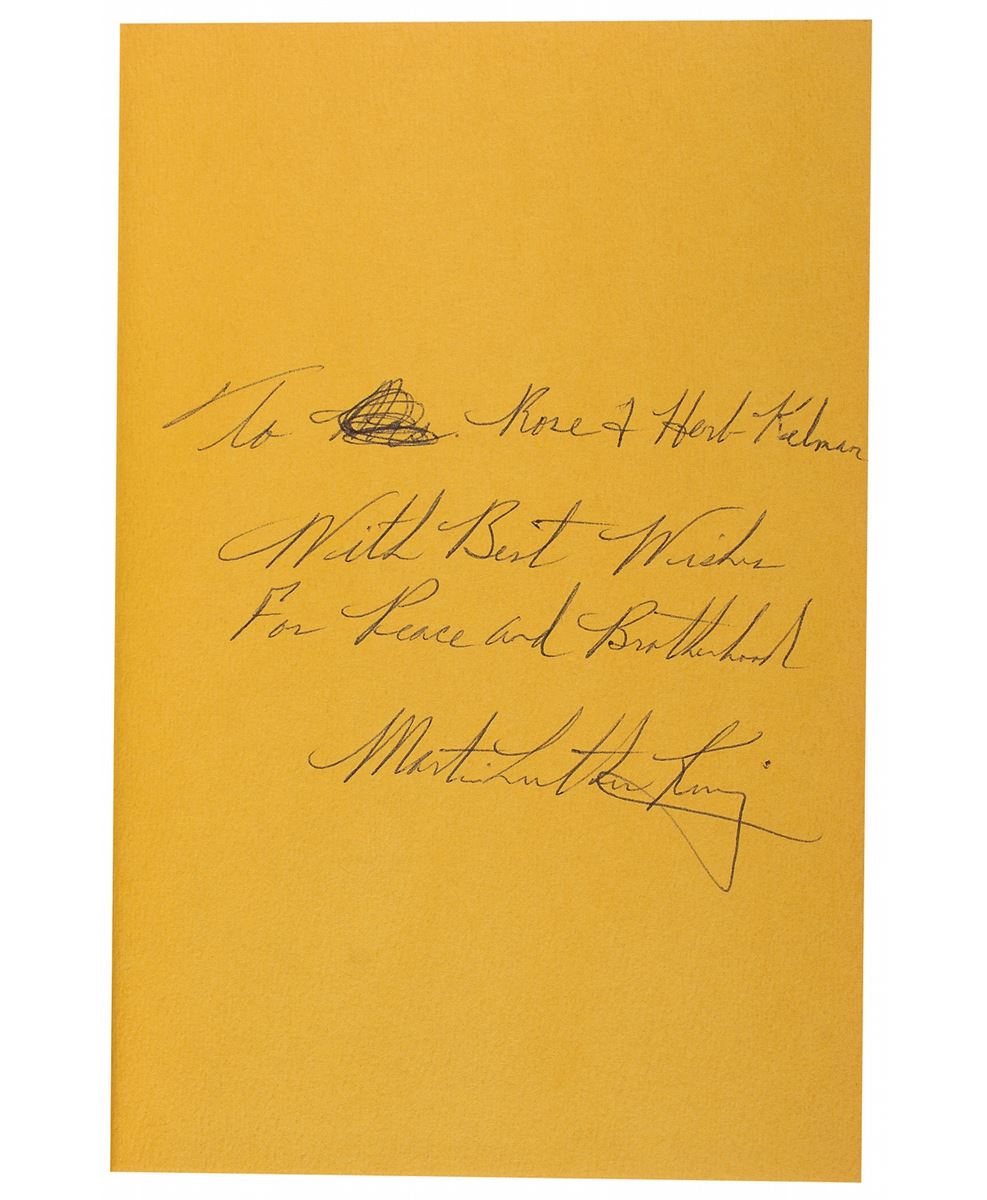 To Rose & Herb Kelman
With Best Wishes
For Peace and Brotherhood
Martin Luther King